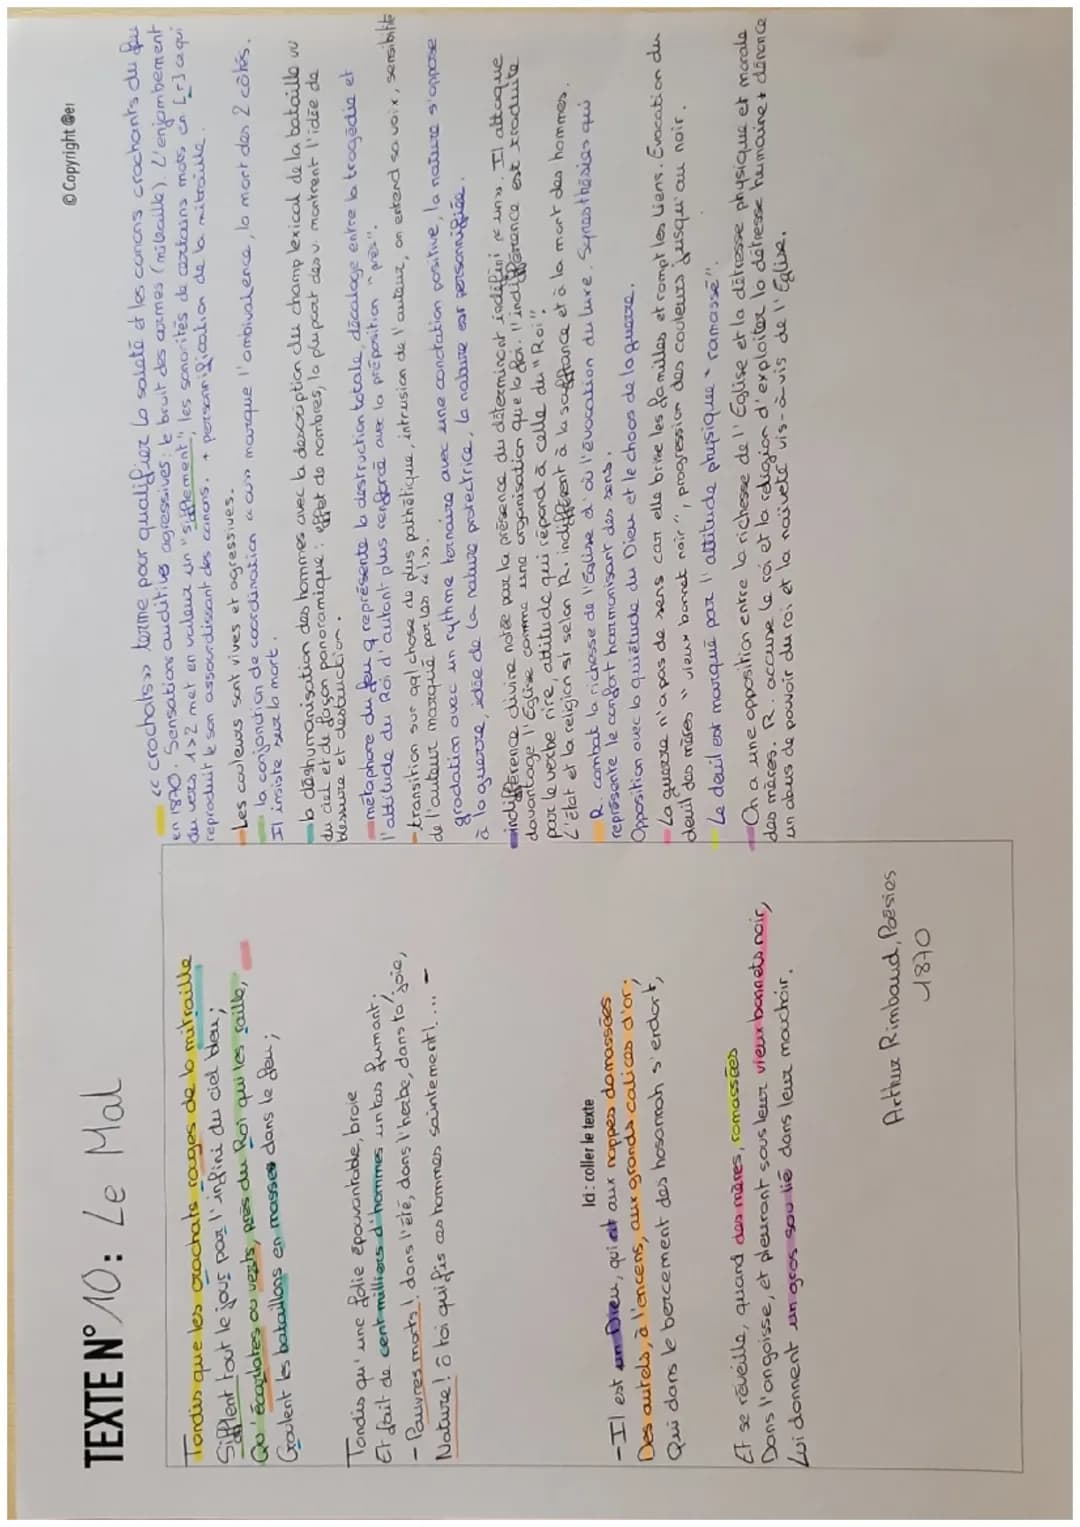 TEXTE N° 10 : Le Mal
© Copyright @ei
Tandis que les crachats rouges de la mitraille
Sifflent tout le jour par l'infini du ciel bleu ;
Qu'écarlates ou verts, près du Roi qui les raille,
Croulent les bataillons en masse dans le feu ;
Tandis qu'une folie épouvantable, broie
Et fait de cent milliers d'hommes un tas fumant ;
- Pauvres morts ! dans l'été, dans l'herbe, dans ta joie,
Nature ! ô toi qui fis ces hommes saintement !... -
Ici : coller le texte
- Il est un Dieu, qui rit aux nappes damassées
Des autels, à l'encens, aux grands calices d'or ;
Qui dans le bercement des hosannah s'endort,
Et se réveille, quand des mères, ramassées
Dans l'angoisse, et pleurant sous leur vieux bonnets noir,
Lui donnent un gros sou lié dans leur mouchoir.
Arthur Rimbaud, Poésies
1870
"crachats" terme pour qualifier la saleté et les canons crachants du feu
en 1870. Sensations auditives agressives : le bruit des armes (mitraille). L'enjambement
du vers 1>2 met en valeur un "sifflement", les sonorités de certains mots en [r] ce qui
reproduit le son assourdissant des canons. + personnification de la mitraille.
Les couleurs sont vives et agressives.
la conjonction de coordination « ou » marque l'ambivalence, la mort des 2 côtés.
Il insiste sur la mort.
la déshumanisation des hommes avec la description du champ lexical de la bataille vu
du ciel et de façon panoramique : effet de nombres, la plupart des v. montrent l'idée de
blessure et destruction.
métaphore du feu q représente la destruction totale, décalage entre la tragédie et
l'attitude du Roi d'autant plus renforcé avec la préposition "près".
transition sur qql chose de plus pathétique, intrusion de l'auteur, on entend sa voix, sensibilité
de l'auteur marqué par les « ! ».
gradation avec un rythme ternaire avec une conotation positive, la nature s'oppose
à la guerre, idée de la nature protectrice, la nature est personnifiée.
indifférence divine notée par la présence du déterminant indéfini « un ». Il attaque
davantage l'Eglise comme une organisation que la foi. l'indifférence est traduite
par le verbe rire, attitude qui répond à celle du "Roi".
L'état et la religion st selon R. indifférent à la souffrance et à la mort des hommes.
R. combat la richesse de l'Eglise d'où l'évocation du luxe. Synesthésies qui
représente le confort harmonisant des sens.
Opposition avec la quiétude du Dieu et le chaos de la guerre.
La guerre n'a pas de sens car elle brise les familles et rompt les liens. Évocation du
deuil des mères "vieux bonnet noir", progression des couleurs jusqu'au noir.
Le deuil est marqué par l'attitude physique "ramassé".
On a une opposition entre la richesse de l'Eglise et la détresse physique et morale
des mères. R. accuse le roi et la religion d'exploiter la détresse humaine + dénonce
un abus de pouvoir du roi et la naïveté vis-à-vis de l'Eglise.